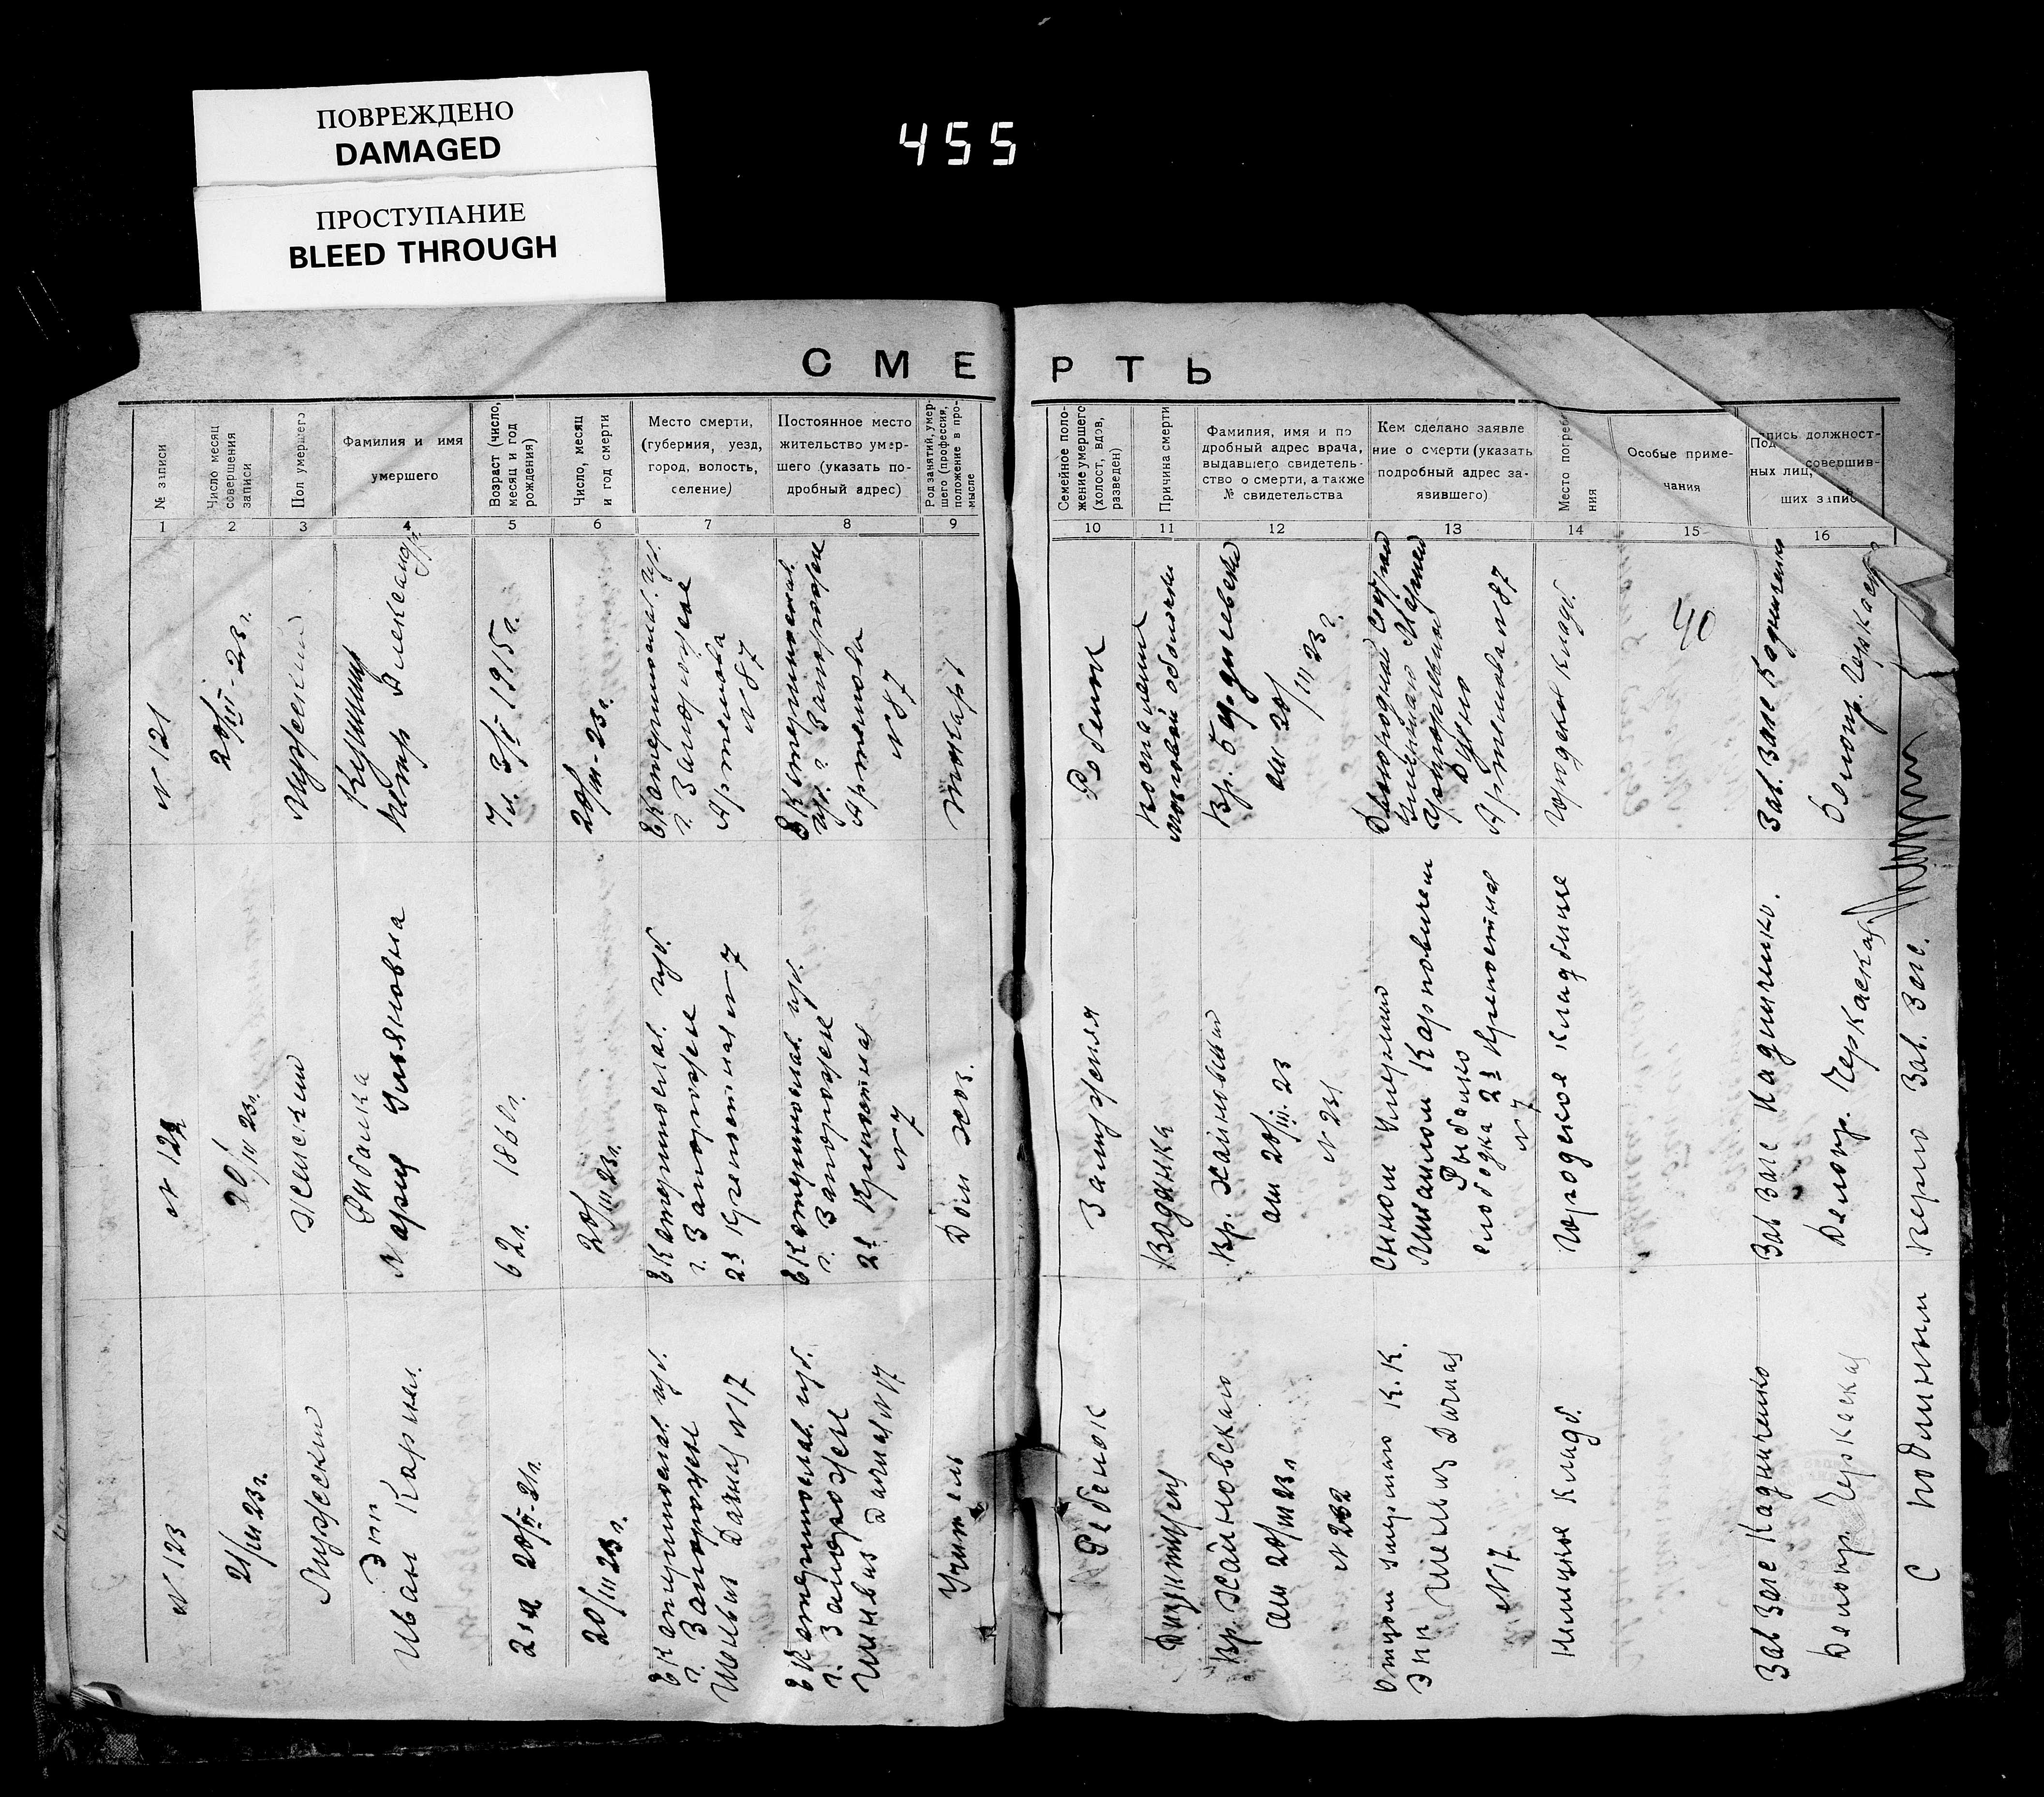 ПОВРЕЖДЕНО
DAMAGED
ПРОСТУПАНИЕ
BLEED THROUGH
455
СМЕРТЬ
№ записи
Число месяц
совершения
записи
Пол умершего
Фамилия и имя
умершего
Возраст (число,
месяц и год
рождения)
Число, месяц
и год смерти
Место смерти,
(губерния, уезд,
город, волость,
селение)
Постоянное место
жительство умер-
шего (указать по-
дробный адрес)
Род занятий, умер-
шего (профессия,
положение в про-
мысле
Семейное поло-
жение умершего
(холост, вдов,
разведен)
Причина смерти
Фамилия, имя и по
дробный адрес врача,
выдавшего свидетель-
ство о смерти, а также
№ свидетельства
Кем сделано заявле
ние о смерти (указать
подробный адрес за-
явившего)
Место погребе
ния
Особые приме-
чания
Подпись должност-
ных лиц, совершив-
ших запис
1 2 3 4 5 6 7 8 9 10 11 12 13 14 15 16
N 121
20/III-23г.
Мужский
Петр Александр.
7л. 3/V 1915г.
20/III-23г.
Екатеринослав. губ.
г. Запорожье
Артемова
N 87
Екатеринослав.
губ. г. Запорожье
Артемова
N 87
Ребенок
воспаление
мозговой оболочки
Вр.
от 20/III 23г.
Артемова N 87
Городское кладб.
40
Зав. Загс Кадниченко
Делопр. Черкаск
N 122
20/III 23г.
Женский
Рибалка
Мария Ульяновна
62л. 1860г.
20/III 23г.
Екатеринослав. губ.
г. Запорожье
2я Крепостная N 7
Екатеринослав. губ.
г. Запорожье
2я Крепостная
N 7
Дом хоз.
Замужняя
Водянка
Вр.
от 20/III-23
N 231
Сыном умершей
Карповичем
Рыбалко
слободка 2я Крепостная
N 7
Городское кладбище
Зав Загс Кадниченко.
Делопр. Черкаская
N 123
21/III 23г.
Мужский
Эпп
Иван Корнел.
20/III 23г.
Екатеринослав. губ.
г. Запорожье
Дачная N 17
Екатеринослав. губ.
г. Запорожье
Дачная N 17
Учитель
Ребенок
Вр. Хайновского
от 20/III 23г
N 232
Отцом умершего К.К.
Эпп Дачная
N 17
Немецкое кладб.
Зав Загс Кадниченко
Делопр. Черкаская
С подлинным верно Зав. Загс.